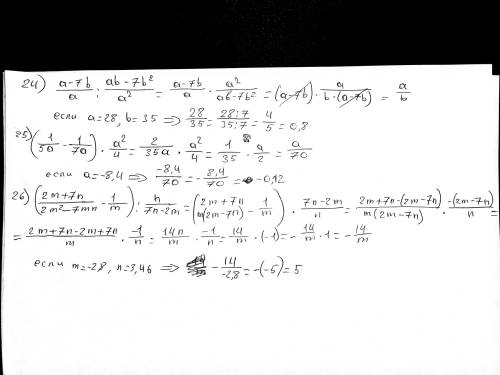 24) (a-7b)/a : (ab-7b²)/a² = (a-7b)/a · a²/(ab-7b²) = (a-7b) · a/(b·(a-7b)) = a/b
если a=28, b=35 ⇒ 28/35 = 28:7/35:7 = 4/5 = 0,8
25) (1/5a - 1/7a) · a²/4 = 2/35a · a²/4 = 1/35 · a/2 = a/70
если a=-8,4 ⇒ -8,4/70 = -8,4/70 = -0,12
26) ((2m+7n)/(2m²-7mn) - 1/m) : n/(7n-2m) = ((2m+7n)/(m(2m-7n)) - 1/m) · (7n-2m)/n = (2m+7n-(2m-7n))/(m(2m-7n)) · -(2m-7n)/n =
= (2m+7n-2m+7n)/m · -1/n = 14n/m · -1/n = 14/m · (-1) = -14/m · 1 = -14/m
если m=-2,8, n=3,46 ⇒ -14/-2,8 = -(-5) = 5